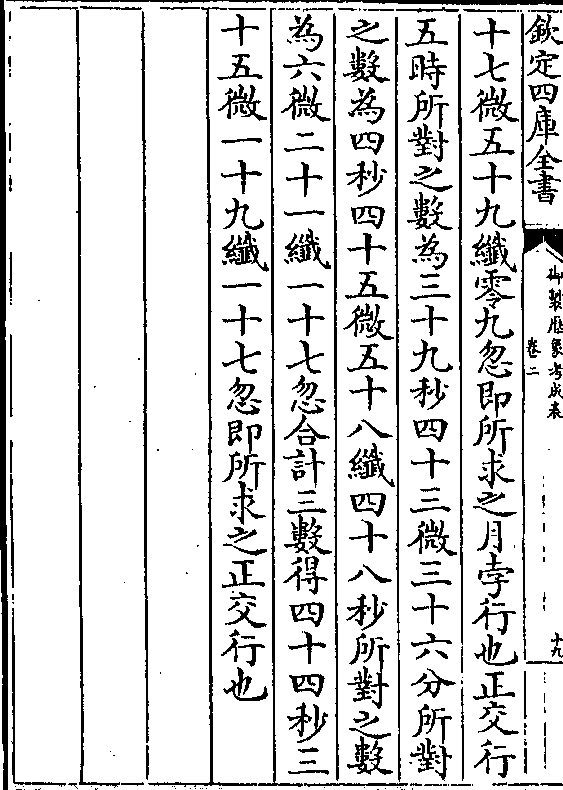 欽定四庫全書
御製厯象考成表
卷二
十九
十七微五十九纖零九忽即所求之月孛行也正交行
五時所對之數為三十九秒四十三微三十六分所對
之數為四秒四十五微五十八纖四十八秒所對之數
為六微二十一纖一十七忽合計三數得四十四秒三
十五微一十九纖一十七忽即所求之正交行也